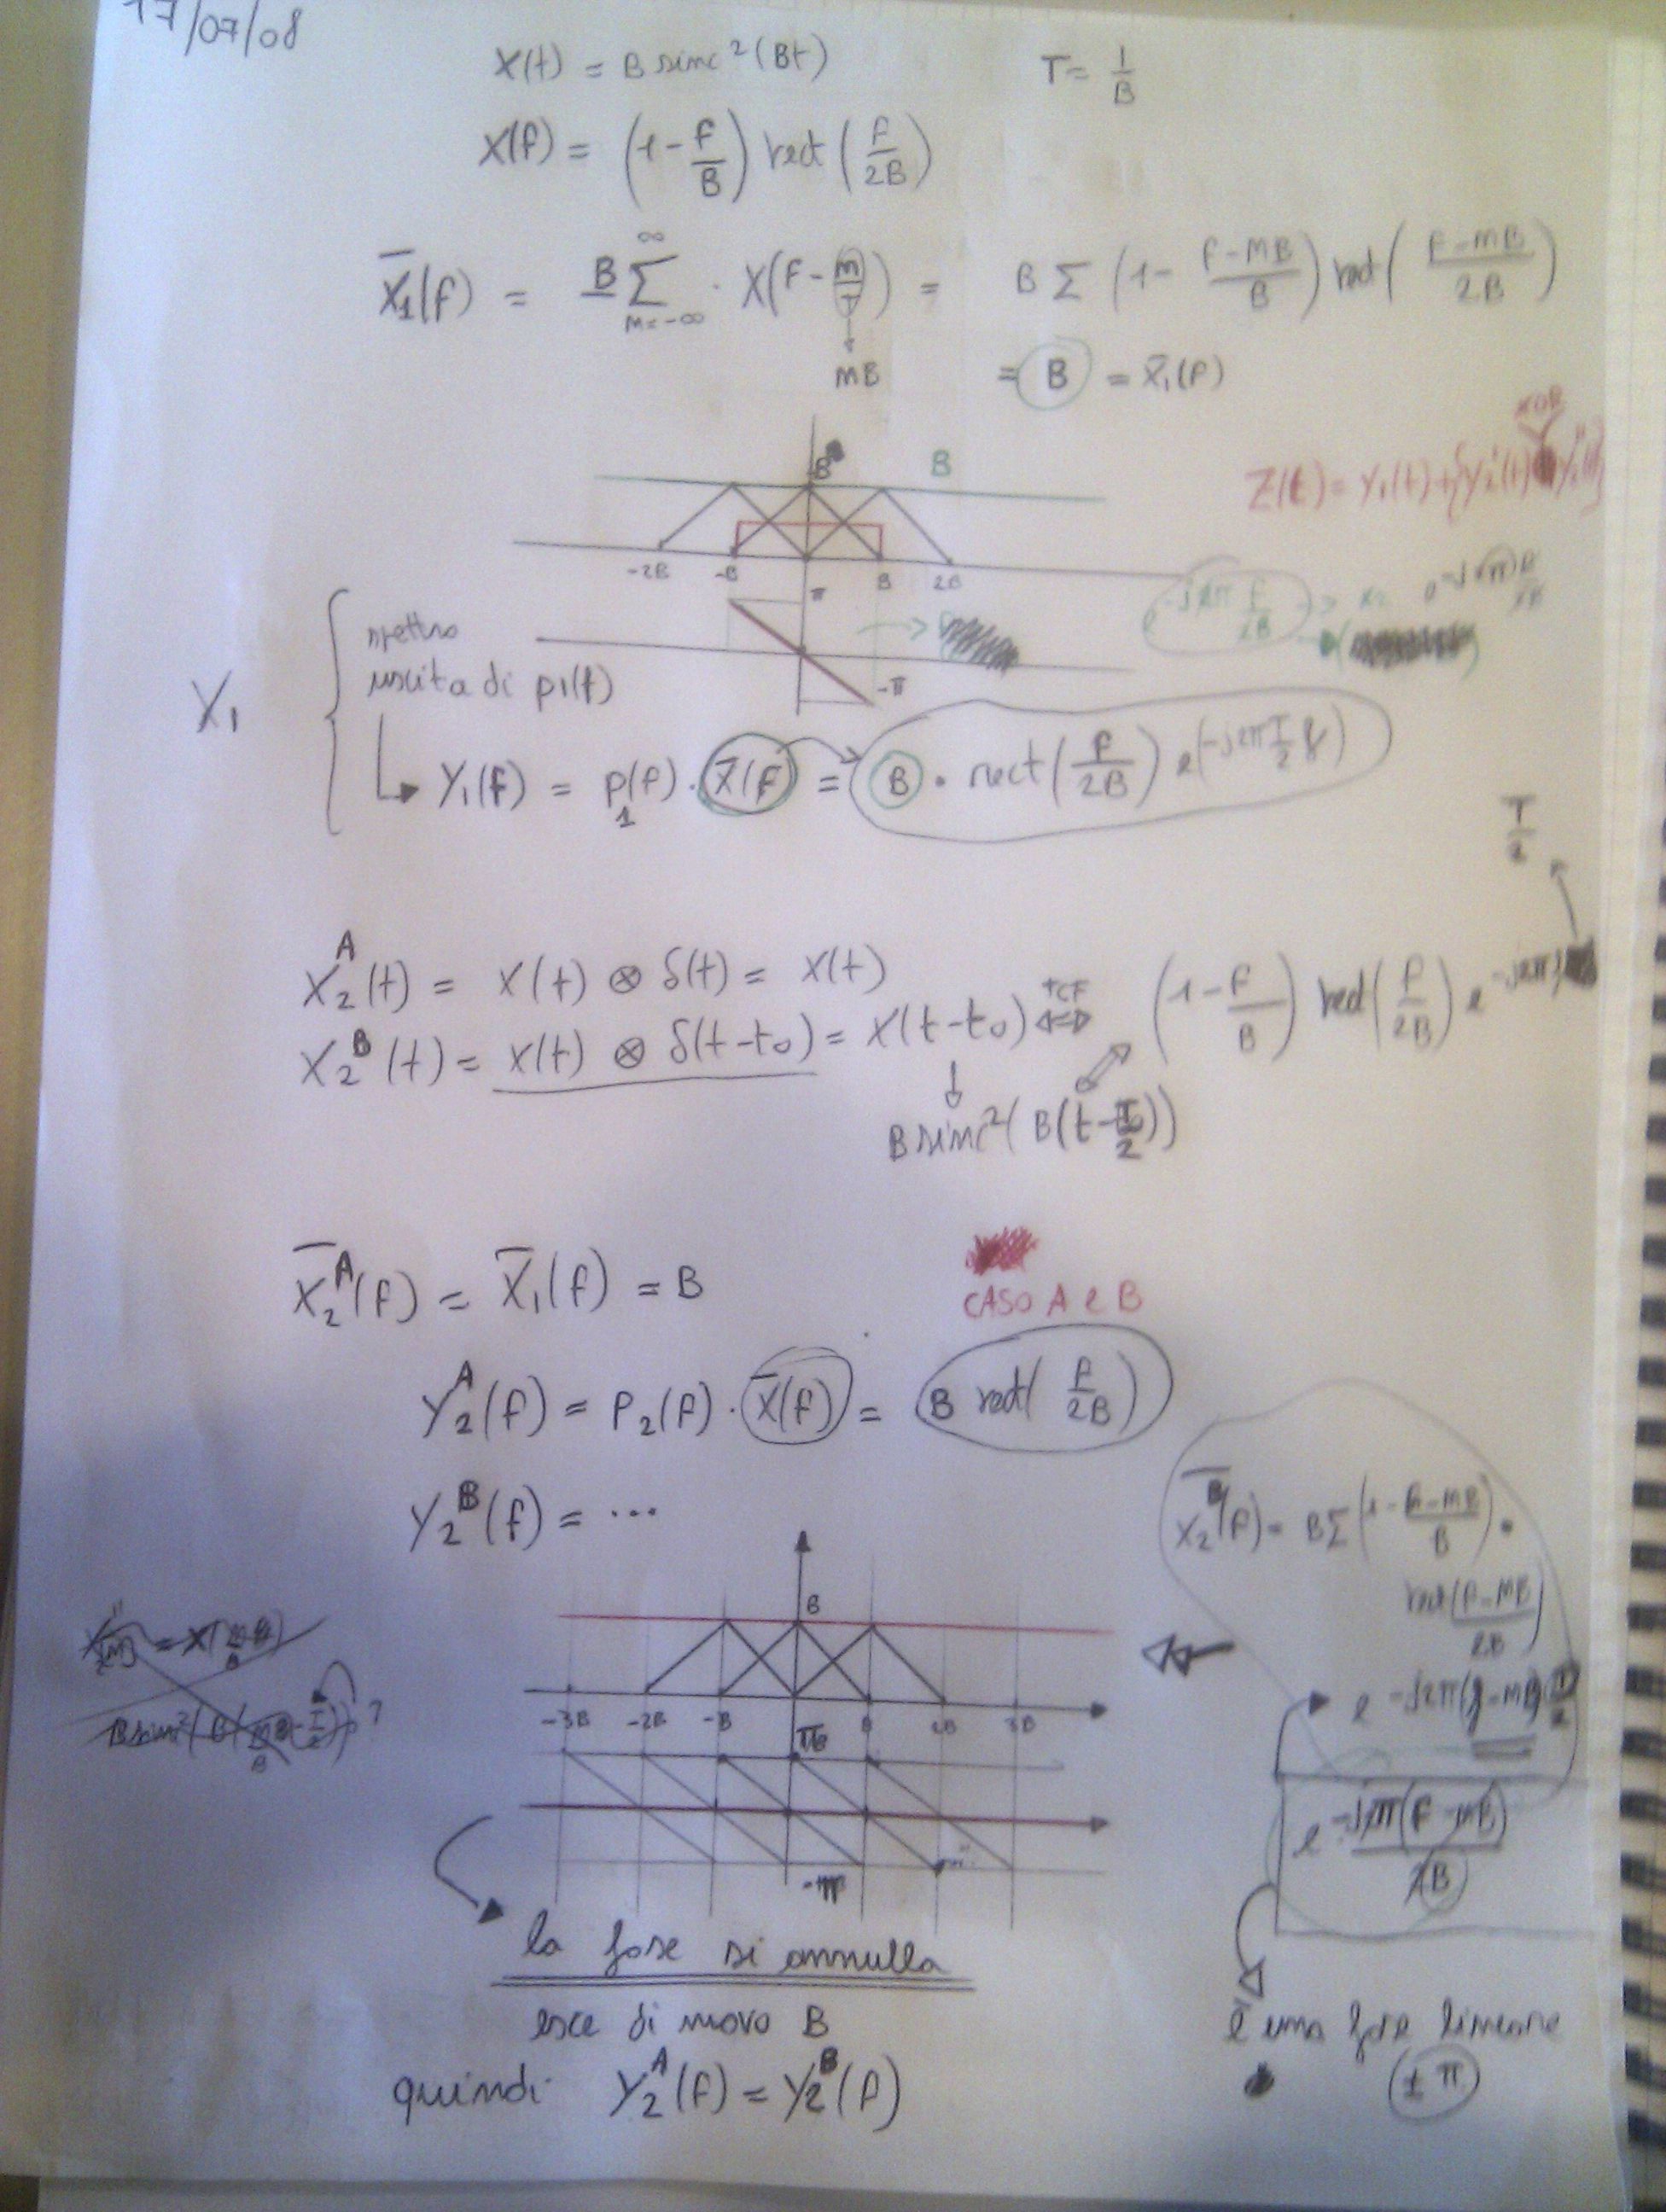 17/07/08
X(t) = B sinc²(Bt)    T = 1/B
X(f) = (1 - f/B) rect(f/2B)
X̄₁(f) = B ∑_{m=-∞}^{∞} · X(f - m/T) = B ∑ (1 - (f-mB)/B) rect((f-mB)/2B)
mB    = B = X̄₁(f)
B    B
Z(t) = Y₁(t) +
-2B  -B  B  2B
π
-π
e^{-j2π f/2B}
spettro
uscita di p1(t)
Y₁
Y₁(f) = P₁(f) · X̄(f) = B · rect(f/2B) e^{(-j2π T/2 f)}
T/2
X₂ᴬ(t) = X(t) ⊗ δ(t) = X(t)
X₂ᴮ(t) = x(t) ⊗ δ(t-t₀) = X(t-t₀) TCF ⇔ (1 - f/B) rect(f/2B) e^{-j2πf
B sinc²(B(t - T/2))
X̄₂ᴬ(f) = X̄₁(f) = B
CASO A e B
Y₂ᴬ(f) = P₂(f) · X̄(f) = B rect(f/2B)
Y₂ᴮ(f) = ...
X̄₂ᴮ(f) = B∑(1 - (f-mB)/B) ·
rect((f-mB)/2B)
e^{-j2π(f-mB)T/2}
B
-3B  -2B  -B  B  2B  3B
π
-π
e^{-j2π(f-mB)/2B}
la fase si annulla
esce di nuovo B
quindi Y₂ᴬ(f) = Y₂ᴮ(f)
è una fase lineare
(±π)